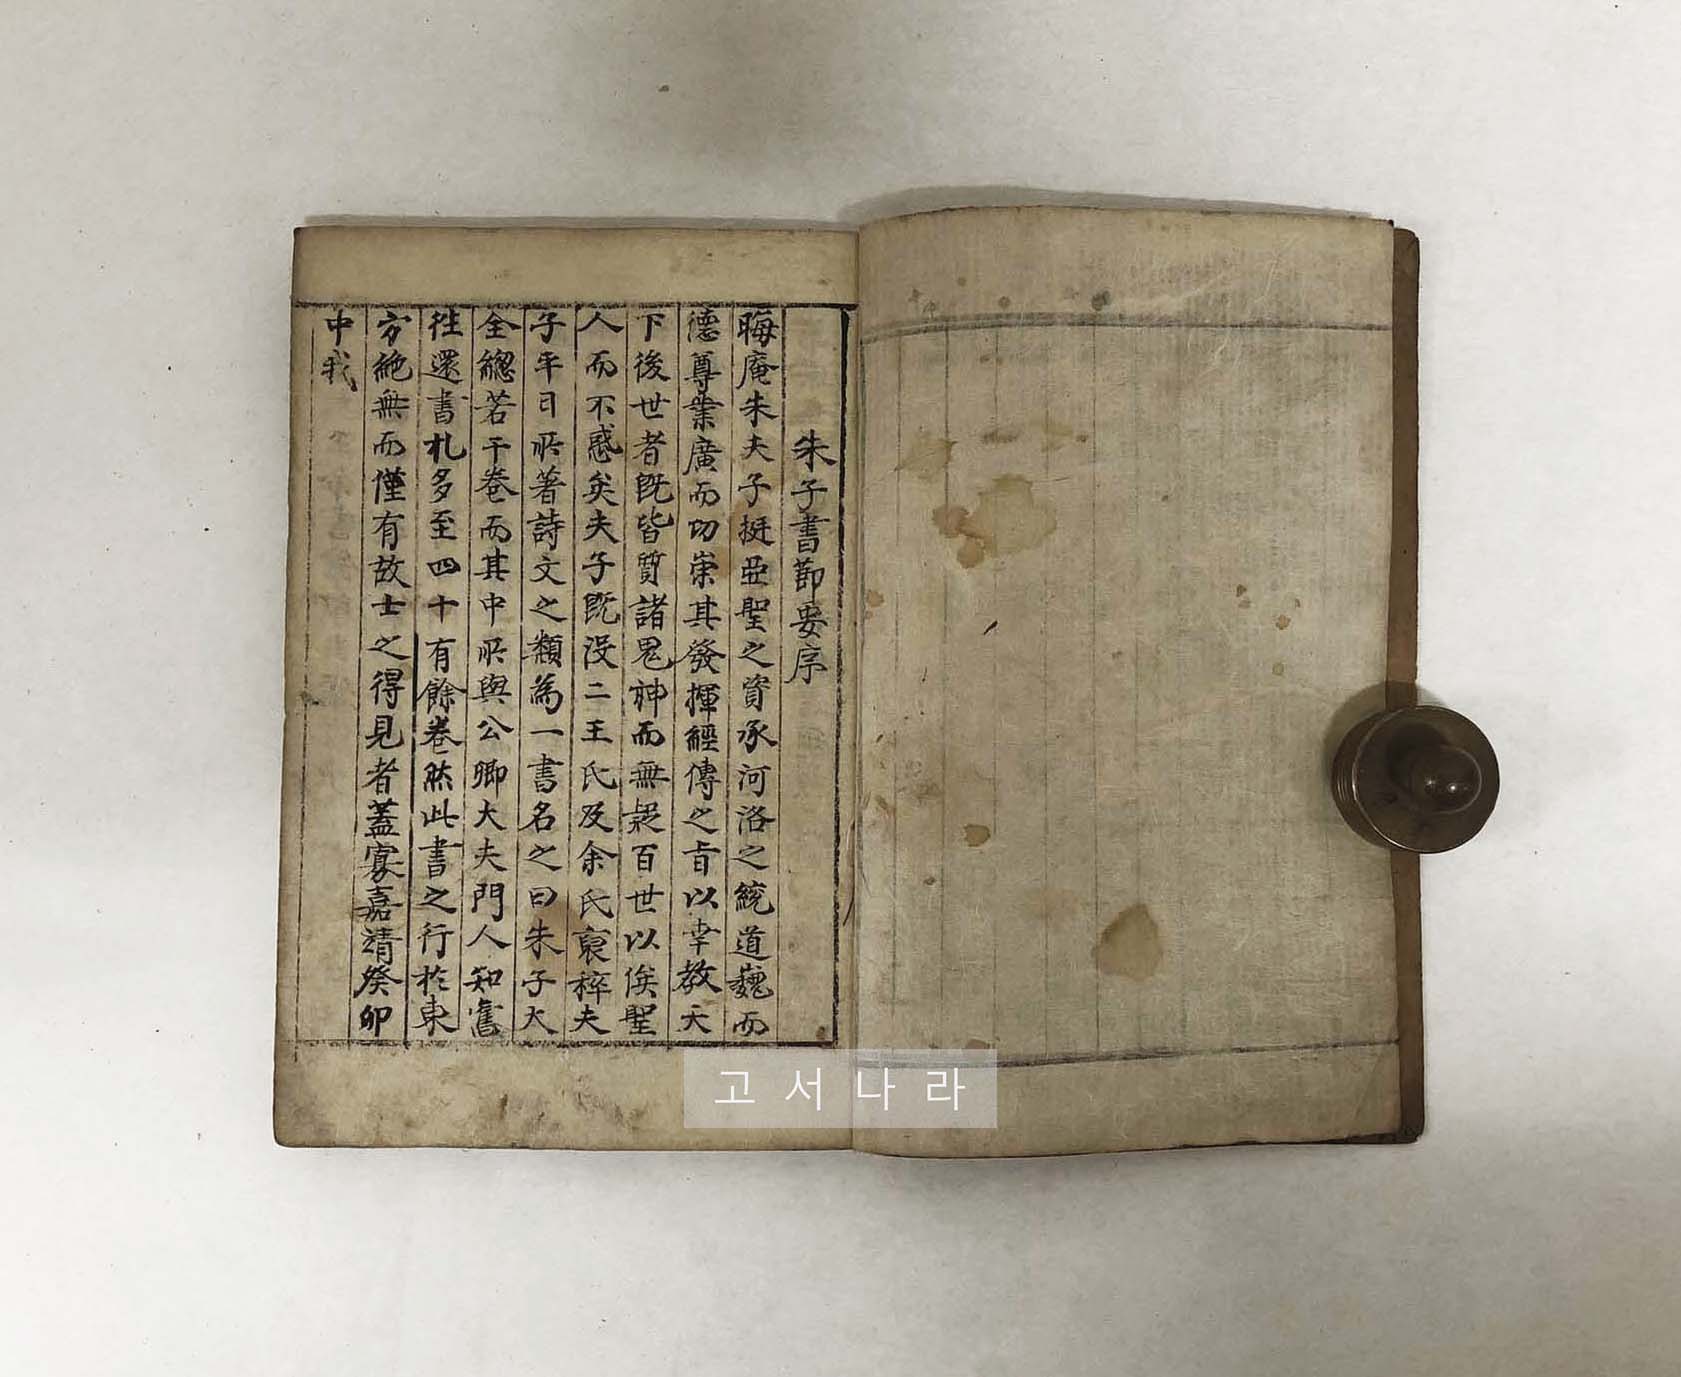 朱子書節要序
晦庵朱夫子挺亞聖之資承河洛之統道巍而
德尊業廣而功崇其發揮經傳之旨以幸教天
下後世者既皆質諸鬼神而無疑百世以俟聖
人而不惑矣夫子既没二王氏及余氏裒稡夫
子平日所著詩文之類為一書名之曰朱子大
全總若干卷而其中所與公卿大夫門人知舊
徃還書札多至四十有餘卷然此書之行於東
方絶無而僅有故士之得見者蓋寡嘉靖癸卯
中我
고서나라